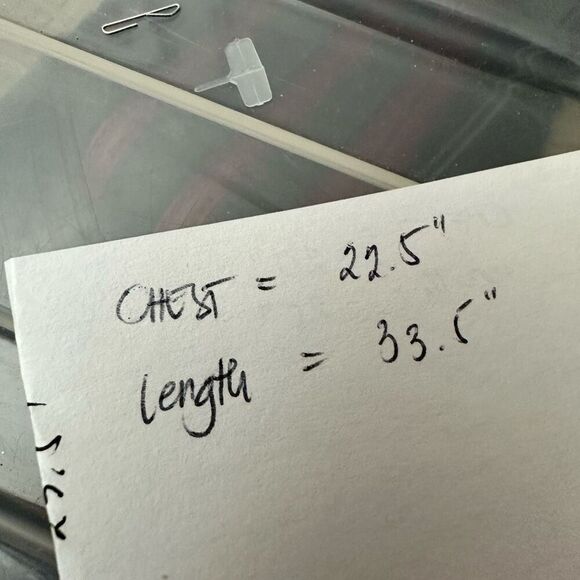 CHEST = 22.5"
length = 33.5"